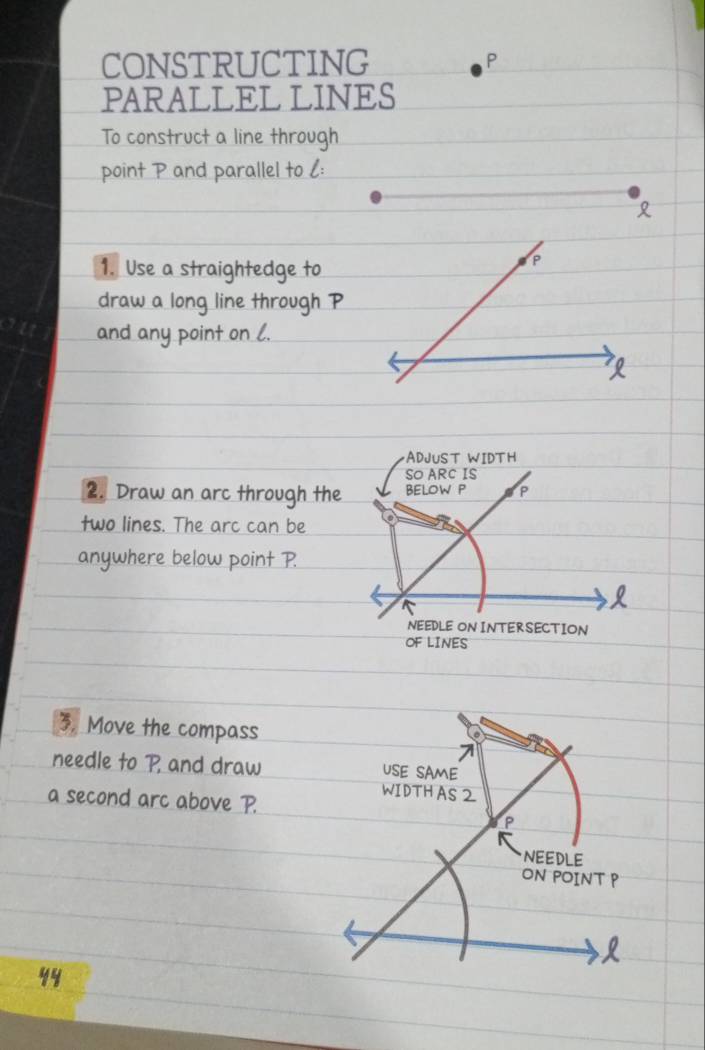 CONSTRUCTING
PARALLEL LINES
P
To construct a line through
point P and parallel to ℓ:
ℓ
1. Use a straightedge to
draw a long line through P
and any point on ℓ.
P
ℓ
ADJUST WIDTH
SO ARC IS
BELOW P
2. Draw an arc through the
two lines. The arc can be
anywhere below point P.
P
ℓ
NEEDLE ON INTERSECTION
OF LINES
3. Move the compass
needle to P, and draw
a second arc above P.
USE SAME
WIDTH AS 2
P
NEEDLE
ON POINT P
ℓ
44